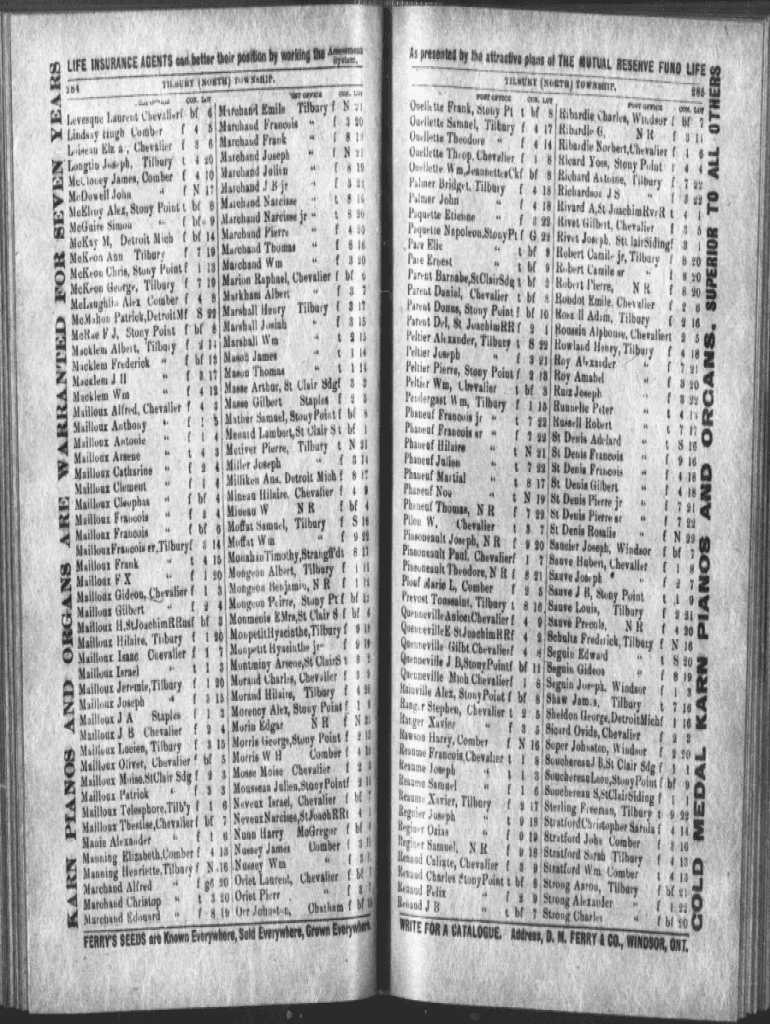 LIFE INSURANCE AGENTS can better their position by working the Assessment System.
284 TILBURY (NORTH) TOWNSHIP.
KARN PIANOS AND ORGANS ARE WARRANTED FOR SEVEN YEARS
CON. LOT
Levesque Laurent Chevalier f bf 6
Lindsay Hugh Comber f 4 5
Loiseau Chevalier f 3 6
Longtin Joseph, Tilbury t 4 20
McCloney James, Comber f 4 10
McDowell John " f N 17
McElroy Alex, Stony Point t bf 8
McGuire Simon " f bf 9
McKay M, Detroit Mich f bf 14
McKeon Ann Tilbury f 7 19
McKeon Chris, Stony Point f 1 13
McKeon George, Tilbury f 7 19
McLaughlin Alex Comber f 4 8
McMahon Patrick, Detroit M f S 22
McRae F J, Stony Point f bf 8
Macklem Albert, Tilbury f 2
Macklem Frederick " f bf 13
Macklem J H " f 3 17
Macklem Wm " f 4 12
Mailloux Alfred, Chevalier f 4 3
Mailloux Anthony " f 1 5
Mailloux Antonie " f 1 4
Mailloux Arsene " t 4 3
Mailloux Catharine " f 2 4
Mailloux Clement " f 1 4
Mailloux Cleophas " f bf 4
Mailloux Francois " f 2
Mailloux Francois " f bf 6
Mailloux Francois sr, Tilbury f 3 14
Mailloux Frank " t 4 15
Mailloux F X " f 1 20
Mailloux Gideon, Chevalier f 1 3
Mailloux Gilbert " f 2 4
Mailloux H, St Joachim RR usf bf 3
Mailloux Hilaire, Tilbury f 1 20
Mailloux Isaac Chevalier f 1 7
Mailloux Israel " f 1
Mailloux Jeremie, Tilbury f 1 20
Mailloux Joseph " f 3 15
Mailloux J A Staples f 1 3
Mailloux J B Chevalier f 2 4
Mailloux Lucien, Tilbury f 3 15
Mailloux Oliver, Chevalier f bf 5
Mailloux Moise, St Clair Sdg f 2 3
Mailloux Patrick " f 3
Mailloux Telesphore, Tilb'y f 1 6
Mailloux Theslise, Chevalier f bf 7
Manie Alexander " f 1 6
Manning Elizabeth, Comber f 4 13
Manning Henriette, Tilbury f N 16
Marchand Alfred " f g6 20
Marchand Christop " t 3 20
Marchand Edouard " f 8 19
POST OFFICE CON. LOT
Marchand Emile Tilbury f N 21
Marchand Francois " f 3 20
Marchand Frank " f 8 19
Marchand Joseph " f N 21
Marchand Julien " f 8 19
Marchand J B jr " f 3 21
Marchand Narcisse " t 8 16
Marchand Narcisse jr " t 8 20
Marchand Pierre " f 4 20
Marchand Thomas " f 8 16
Marchand Wm " f 3 20
Marion Raphael, Chevalier f bf 6
Markham Albert " f 3 7
Marshall Henry Tilbury f 3 17
Marshall Josiah " f 3 15
Marshall Wm " t 2 15
Mason James " t 1 14
Mason Thomas " t 1 14
Masse Arthur, St Clair Sdg f 3 3
Masse Gilbert Staples f 2 5
Mather Samuel, Stony Point f bf 8
Menard Lambert, St Clair S t bf 1
Metiver Pierre, Tilbury t N 21
Miller Joseph " f 3 14
Milliken Ans, Detroit Mich f 8 17
Mineau Hilaire, Chevalier f 4 9
Mineau W N R f bf 4
Moffat Samuel, Tilbury f S 16
Moffat Wm " f 9 22
Monahan Timothy, Strangf'd t 8 17
Mongeon Albert, Tilbury f 1
Mongeon Benjamin, N R f 1
Mongeon Peirre, Stony Pt f bf 12
Monmenie E Mrs, St Clair S f bf 4
Monpetit Hyacinthe, Tilbury f 9 19
Monpetit Hyacinthe jr " f 9 19
Montminy Arsene, St Clair S t 3
Morand Charles, Chevalier f 3 5
Morand Hilaire, Tilbury f 4 20
Morency Alex, Stony Point f 1 9
Morin Edgar N R f N 21
Morris George, Stony Point f 2 13
Morris W H Comber f 4
Mosse Moise Chevalier f 2
Mousseau Julien, Stony Point f 2
Neveux Israel, Chevalier f bf
Neveux Narcise, St Joach RR t 4
Nunn Harry McGregor f bf
Nussey James Comber f 3
Nussey Wm " f 3 11
Oriet Laurent, Chevalier f bf
Oriet Pierr " f 3
Orr Johnston, Chatham f bf
FERRY'S SEEDS are Known Everywhere, Sold Everywhere, Grown Everywhere.
As presented by the attractive plans of THE MUTUAL RESERVE FUND LIFE
TILBURY (NORTH) TOWNSHIP. 285
POST OFFICE CON. LOT
Ouellette Frank, Stony Pt t bf 8
Ouellette Samuel, Tilbury f 4 17
Ouellette Theodore " f 4 14
Ouellette Theop, Chevalier f 1 8
Ouellette Wm, Jeannettes Ck f bf 8
Palmer Bridget, Tilbury f 4 18
Palmer John " f 4 18
Paquette Etienne " f 3 22
Paquette Napoleon, Stony Pt f G 22
Pare Elie " t bf 9
Pare Ernest " t bf 9
Parent Barnabe, St Clair Sdg t bf 2
Parent Daniel, Chevalier t bf 8
Parent Donus, Stony Point f bf 10
Parent Del, St Joachim RR f 2 1
Peltier Alexander, Tilbury t S 22
Peltier Joseph " f 3 21
Peltier Pierre, Stony Point f 2 13
Peltier Wm, Chevalier t bf 3
Pendergast Wm, Tilbury f 1 15
Phaneuf Francois jr " t 7 22
Phaneuf Francois sr " f 7 22
Phaneuf Hilaire " t N 21
Phaneuf Julien " t 7 22
Phaneuf Martial " t 8 17
Phaneuf Noe " t N 19
Phaneuf Thomas, N R f 7 22
Pilon W. Chevalier t 3 7
Pinsoneault Joseph, N R f 9 20
Pinsoneault Paul, Chevalier f 1 7
Pinsoneault Theodore, N R f 8 21
Plouf Marie L, Comber f 2 5
Prevost Toussaint, Tilbury t 8 16
Quenneville Anton Chevalier f
Quenneville E St Joachim RR f 4 2
Quenneville Gilbt. Chevalier f 1 6
Quenneville J B, Stony Point f bf 11
Quenneville Mich Chevalier f 1 6
Rainville Alex, Stony Point f bf 8
Ranger Stephen, Chevalier t 2 5
Ranger Xavier " f 3 5
Rawson Harry, Comber f N 16
Reaume Francois, Chevalier t 1 8
Reaume Joseph " t 1
Reaume Samuel " f 1 6
Reaume Xavier, Tilbury f 2 17
Regnier Joseph " t 9 18
Regnier Ozias " f 9 18
Regnier Samuel, N R f 9 18
Renaud Calixte, Chevalier f 3 9
Renaud Charles Stony Point t bf 8
Renaud Felix " f 2 9
Renaud J B " t bf 7
POST OFFICE CON. LOT
Ribardie Charles, Windsor f bf 7
Ribardie G, N R f 3 14
Ribardie Norbert, Chevalier f 1 6
Ricard Yoes, Stony Point f 4 4
Richard Antoine, Tilbury f 7 22
Richardson J S " f 3 22
Rivard A, St Joachim Rv R t 4 1
Rivet Gilbert, Chevalier f 3 5
Rivet Joseph, St Clair Siding f 3 1
Robert Camile jr, Tilbury f 8 20
Robert Camile sr " f 8 20
Robert Pierre, N R f 8 20
Roudot Emile, Chevalier f 2 6
Rose II Adam, Tilbury f 2 16
Roussin Alphouse, Chevalier t 2 5
Rowland Henry, Tilbury f 4 18
Roy Alexander " f 7 21
Roy Amabel " f 3 20
Ruiz Joseph " f 3 22
Runnelle Peter " t 4 1
Russell Robert " f 7 17
St Denis Adelard " t S 16
St Denis Francois " f 9 16
St Denis Francois " f 4 18
St Denis Gilbert " f 4 18
St Denis Pierre jr " f 7 21
St Denis Pierre sr " f 7 22
St Denis Rosalie " f N 22
Saucier Joseph, Windsor f bf 7
Sauve Hubert, Chevalier f 1 8
Sauve Joseph " f 2 7
Sauve J B, Stony Point t 1 9
Sauve Louis, Tilbury f 2 21
Sauve Preemle, N R f 4 20
Schults Frederick, Tilbury f N 16
Seguin Edward " t 8 20
Seguin Gideon " f 8 19
Seguin Joseph, Windsor f 1 3
Shaw James, Tilbury t 7 16
Sheldon George, Detroit Mich f 1 16
Sicard Ovide, Chevalier f 2 2
Soper Johnston, Windsor f 2 20
Souchereau J B, St Clair Sdg f 1 1
Souchereau Leon, Stony Point f bf 9
Souchereau S, St Clair Siding f 1 1
Sterling Freeman, Tilbury t 9 22
Stratford Christopher Sarnia f 4 14
Stratford John Comber f 3 16
Stratford Sarah Tilbury f 4 14
Stratford Wm, Comber f 4 13
Strong Aaron, Tilbury f bf 21
Strong Alexander " f 1 22
Strong Charles " f bf 20
WRITE FOR A CATALOGUE. Address, D. M. FERRY & CO., WINDSOR, ONT.
GOLD MEDAL KARN PIANOS AND ORGANS. SUPERIOR TO ALL OTHERS